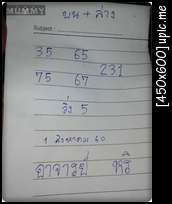 MUMMY
บน + ล่าง
Subject :
35 65
231
75 67
วิ่ง 5
1 สิงหาคม 60
อาจารย์ หริ
[450x600] upic.me